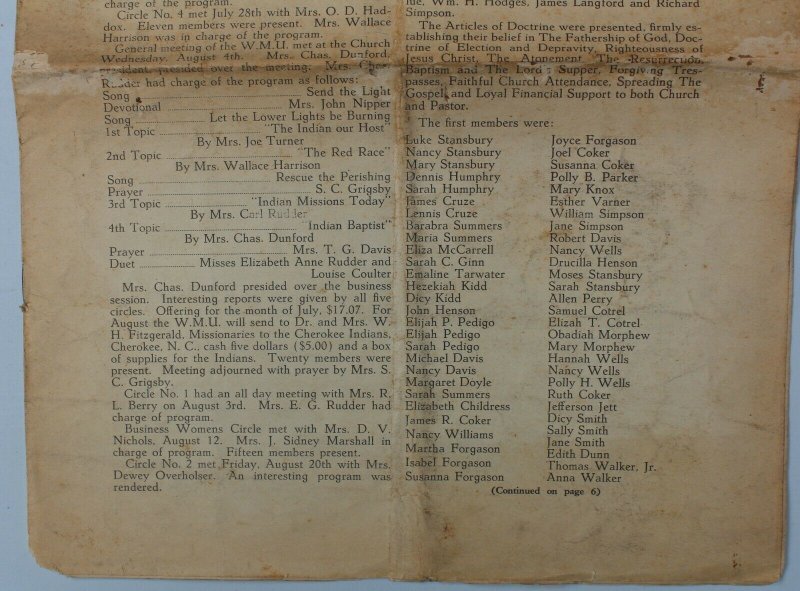 charge of the program.
Circle No. 4 met July 28th with Mrs. O. D. Had-
dox. Eleven members were present. Mrs. Wallace
Harrison was in charge of the program.
General meeting of the W.M.U. met at the Church
Wednesday, August 4th. Mrs. Chas. Dunford,
president, presided over the meeting. Mrs. Chas.
Rudder had charge of the program as follows:
Song Send the Light
Devotional Mrs. John Nipper
Song Let the Lower Lights be Burning
1st Topic "The Indian our Host"
By Mrs. Joe Turner
2nd Topic "The Red Race"
By Mrs. Wallace Harrison
Song Rescue the Perishing
Prayer S. C. Grigsby
3rd Topic "Indian Missions Today"
By Mrs. Carl Rudder
4th Topic Indian Baptist"
By Mrs. Chas. Dunford
Prayer Mrs. T. G. Davis
Duet Misses Elizabeth Anne Rudder and
Louise Coulter
Mrs. Chas. Dunford presided over the business
session. Interesting reports were given by all five
circles. Offering for the month of July, $17.07. For
August the W.M.U. will send to Dr. and Mrs. W.
H. Fitzgerald, Missionaries to the Cherokee Indians,
Cherokee, N. C., cash five dollars ($5.00) and a box
of supplies for the Indians. Twenty members were
present. Meeting adjourned with prayer by Mrs. S.
C. Grigsby.
Circle No. 1 had an all day meeting with Mrs. R.
L. Berry on August 3rd. Mrs. E. G. Rudder had
charge of program.
Business Womens Circle met with Mrs. D. V.
Nichols, August 12. Mrs. J. Sidney Marshall in
charge of program. Fifteen members present.
Circle No. 2 met Friday, August 20th with Mrs.
Dewey Overholser. An interesting program was
rendered.
Wm. H. Hodges, James Langford and Richard
Simpson.
The Articles of Doctrine were presented, firmly es-
tablishing their belief in The Fathership of God, Doc-
trine of Election and Depravity, Righteousness of
Jesus Christ, The Atonement, The Resurrection,
Baptism and The Lord's Supper, Forgiving Tres-
passes, Faithful Church Attendance, Spreading The
Gospel, and Loyal Financial Support to both Church
and Pastor.
The first members were:
Luke Stansbury
Nancy Stansbury
Mary Stansbury
Dennis Humphry
Sarah Humphry
James Cruze
Lennis Cruze
Barabra Summers
Maria Summers
Eliza McCarrell
Sarah C. Ginn
Emaline Tarwater
Hezekiah Kidd
Dicy Kidd
John Henson
Elijah P. Pedigo
Elijah Pedigo
Sarah Pedigo
Michael Davis
Nancy Davis
Margaret Doyle
Sarah Summers
Elizabeth Childress
James R. Coker
Nancy Williams
Martha Forgason
Isabel Forgason
Susanna Forgason
Joyce Forgason
Joel Coker
Susanna Coker
Polly B. Parker
Mary Knox
Esther Varner
William Simpson
Jane Simpson
Robert Davis
Nancy Wells
Drucilla Henson
Moses Stansbury
Sarah Stansbury
Allen Perry
Samuel Cotrel
Elizah T. Cotrel
Obadiah Morphew
Mary Morphew
Hannah Wells
Nancy Wells
Polly H. Wells
Ruth Coker
Jefferson Jett
Dicy Smith
Sally Smith
Jane Smith
Edith Dunn
Thomas Walker, Jr.
Anna Walker
(Continued on page 6)